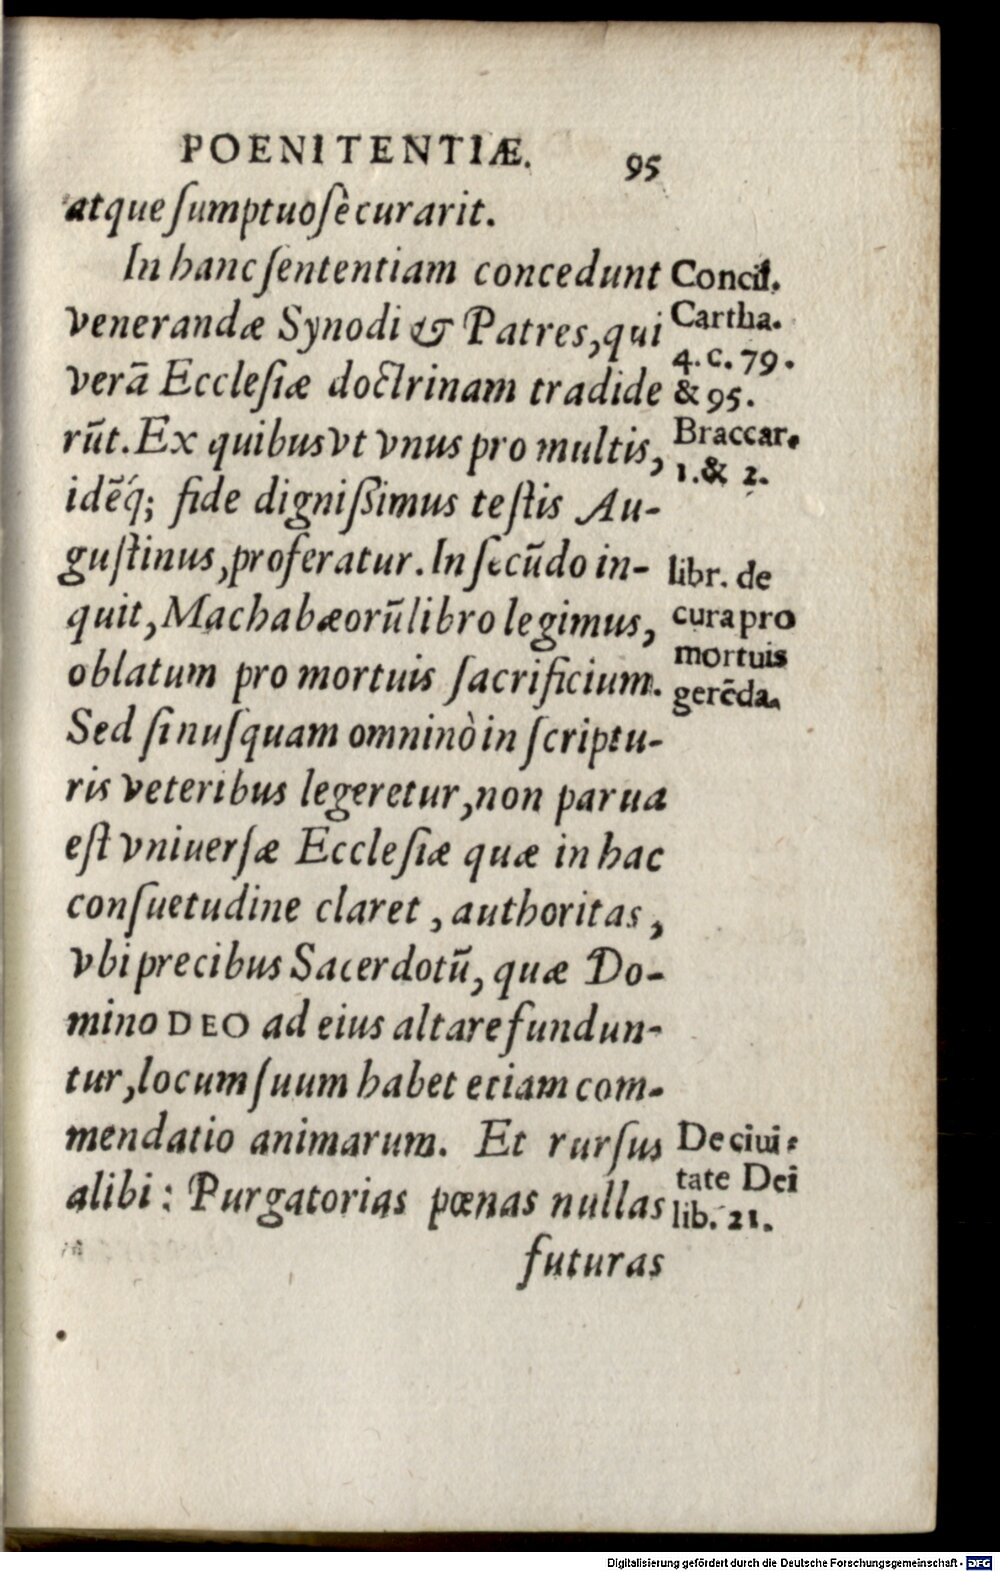 POENITENTIÆ. 95
atque ſumptuoſè curarit.
In hanc ſententiam concedunt
venerandæ Synodi & Patres, qui
verā Eccleſiæ doctrinam tradide
rūt. Ex quibus vt vnus pro multis,
idēq́; fide digniſſimus teſtis Au-
guſtinus, proferatur. In ſecūdo in-
quit, Machabæorū libro legimus,
oblatum pro mortuis ſacrificium.
Sed ſi nuſquam omninò in ſcriptu-
ris veteribus legeretur, non parua
eſt vniuerſæ Eccleſiæ quæ in hac
conſuetudine claret, authoritas,
vbi precibus Sacerdotū, quæ Do-
mino DEO ad eius altare fundun-
tur, locum ſuum habet etiam com-
mendatio animarum. Et rurſus
alibi: Purgatorias pœnas nullas
futuras
Concil.
Cartha.
4. c. 79.
& 95.
Braccar.
1. & 2.
libr. de
cura pro
mortuis
gerēda.
De ciui-
tate Dei
lib. 21.
Digitalisierung gefördert durch die Deutsche Forschungsgemeinschaft - DFG